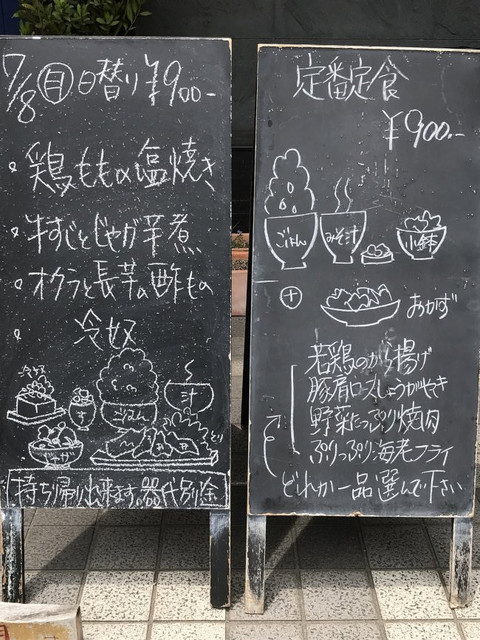 7/8 ㊐ 日替り ¥900-
鶏ももの塩焼き
牛すじとじゃが芋煮
オクラと長芋の酢もの
冷奴
冷奴
す
ごはん
汁
牛すじ
持ち帰り出来ます。器代別途
定番定食
¥900.-
ごはん
みそ汁
小鉢
+
おかず
若鶏のから揚げ
豚肩ロースしょうがやき
野菜たっぷり焼肉
ぷりっぷり海老フライ
どれか一品選んで下さい